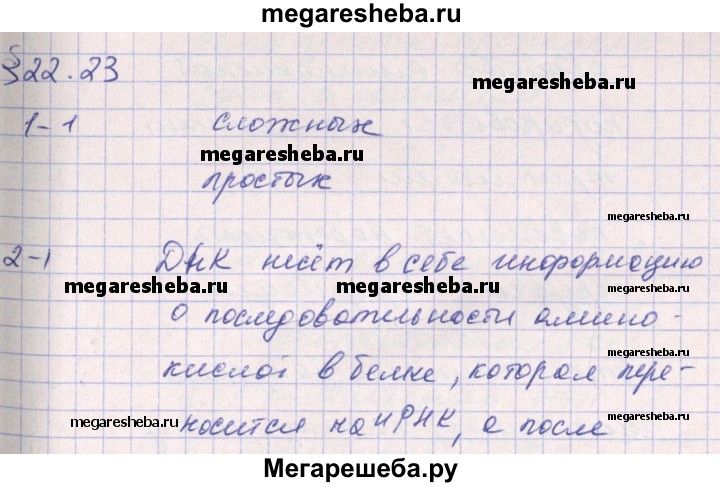 megaresheba.ru
§22.23
megaresheba.ru
1-1 сложных
megaresheba.ru
простых
megaresheba.ru
2-1 ДНК несёт в себе информацию
megaresheba.ru megaresheba.ru megaresheba.ru
о последовательности амино-
кислот в белке, которая пере-
megaresheba.ru
носится на иРНК, а после
megaresheba.ru megaresheba.ru
Мегарешеба.ру